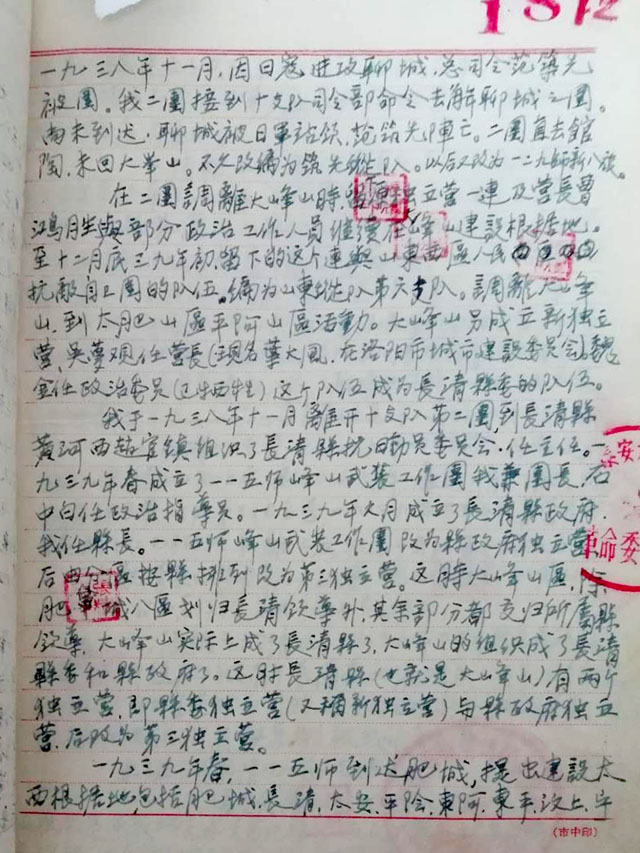 1872
一九三八年十一月,因日寇进攻聊城,总司令范筑先
被围。我二團接到十支队司令部命令去解聊城之围。
尚未到达,聊城被日軍站领,范筑先陣亡。二團直去館
陶,来回大峯山。不久改編为筑先縱队。以后又改为一二九师新八旅。
在二團調離大峰山時,留原独立营一連及营長曹
鸿月生與部分政治工作人员继续在峰山建設根据地。
至十二月底三九年初,留下的这个連與山東西區人民
抗敵自卫團的队伍。編为山東縱队第六支队。調離大峰
山,到太肥山區平阿山區活動。大峰山另成立新独立
营,吳夢观任营長(現名葉大風,在洛阳市城市建設委员会)。魏
金任政治委员(已牺牲)这个队伍成为長清縣委的队伍。
我于一九三八年十一月離开十支队第二團,到長清縣
黄河西赵官鎮组织了長清縣抗日動员委员会,任主任。一
九三九年春成立了一一五师峰山武装工作團我兼團長,石
中向任政治指導员。一九三九年六月成立了長清縣政府,
我任縣長。一一五师峰山武装工作團改为縣政府独立营
后由分區按縣排列改为第三独立营。这時大峰山區,除
肥城八區划归長清領導外,其余部分都交归所屬縣
領導。大峰山实际上成了長清縣了,大峰山的组织成了長清
縣委和縣政府了。这时長清縣(也就是大峰山)有两个
独立营,即縣委独立营(又稱新独立营)与縣政府独立
营,后改为第三独立营。
一九三九年春,一一五师到达肥城,提出建設太
西根据地包括肥城、長清、太安、平陰、東阿、東平、汶上、宁
泰安
革命委
(市中印)